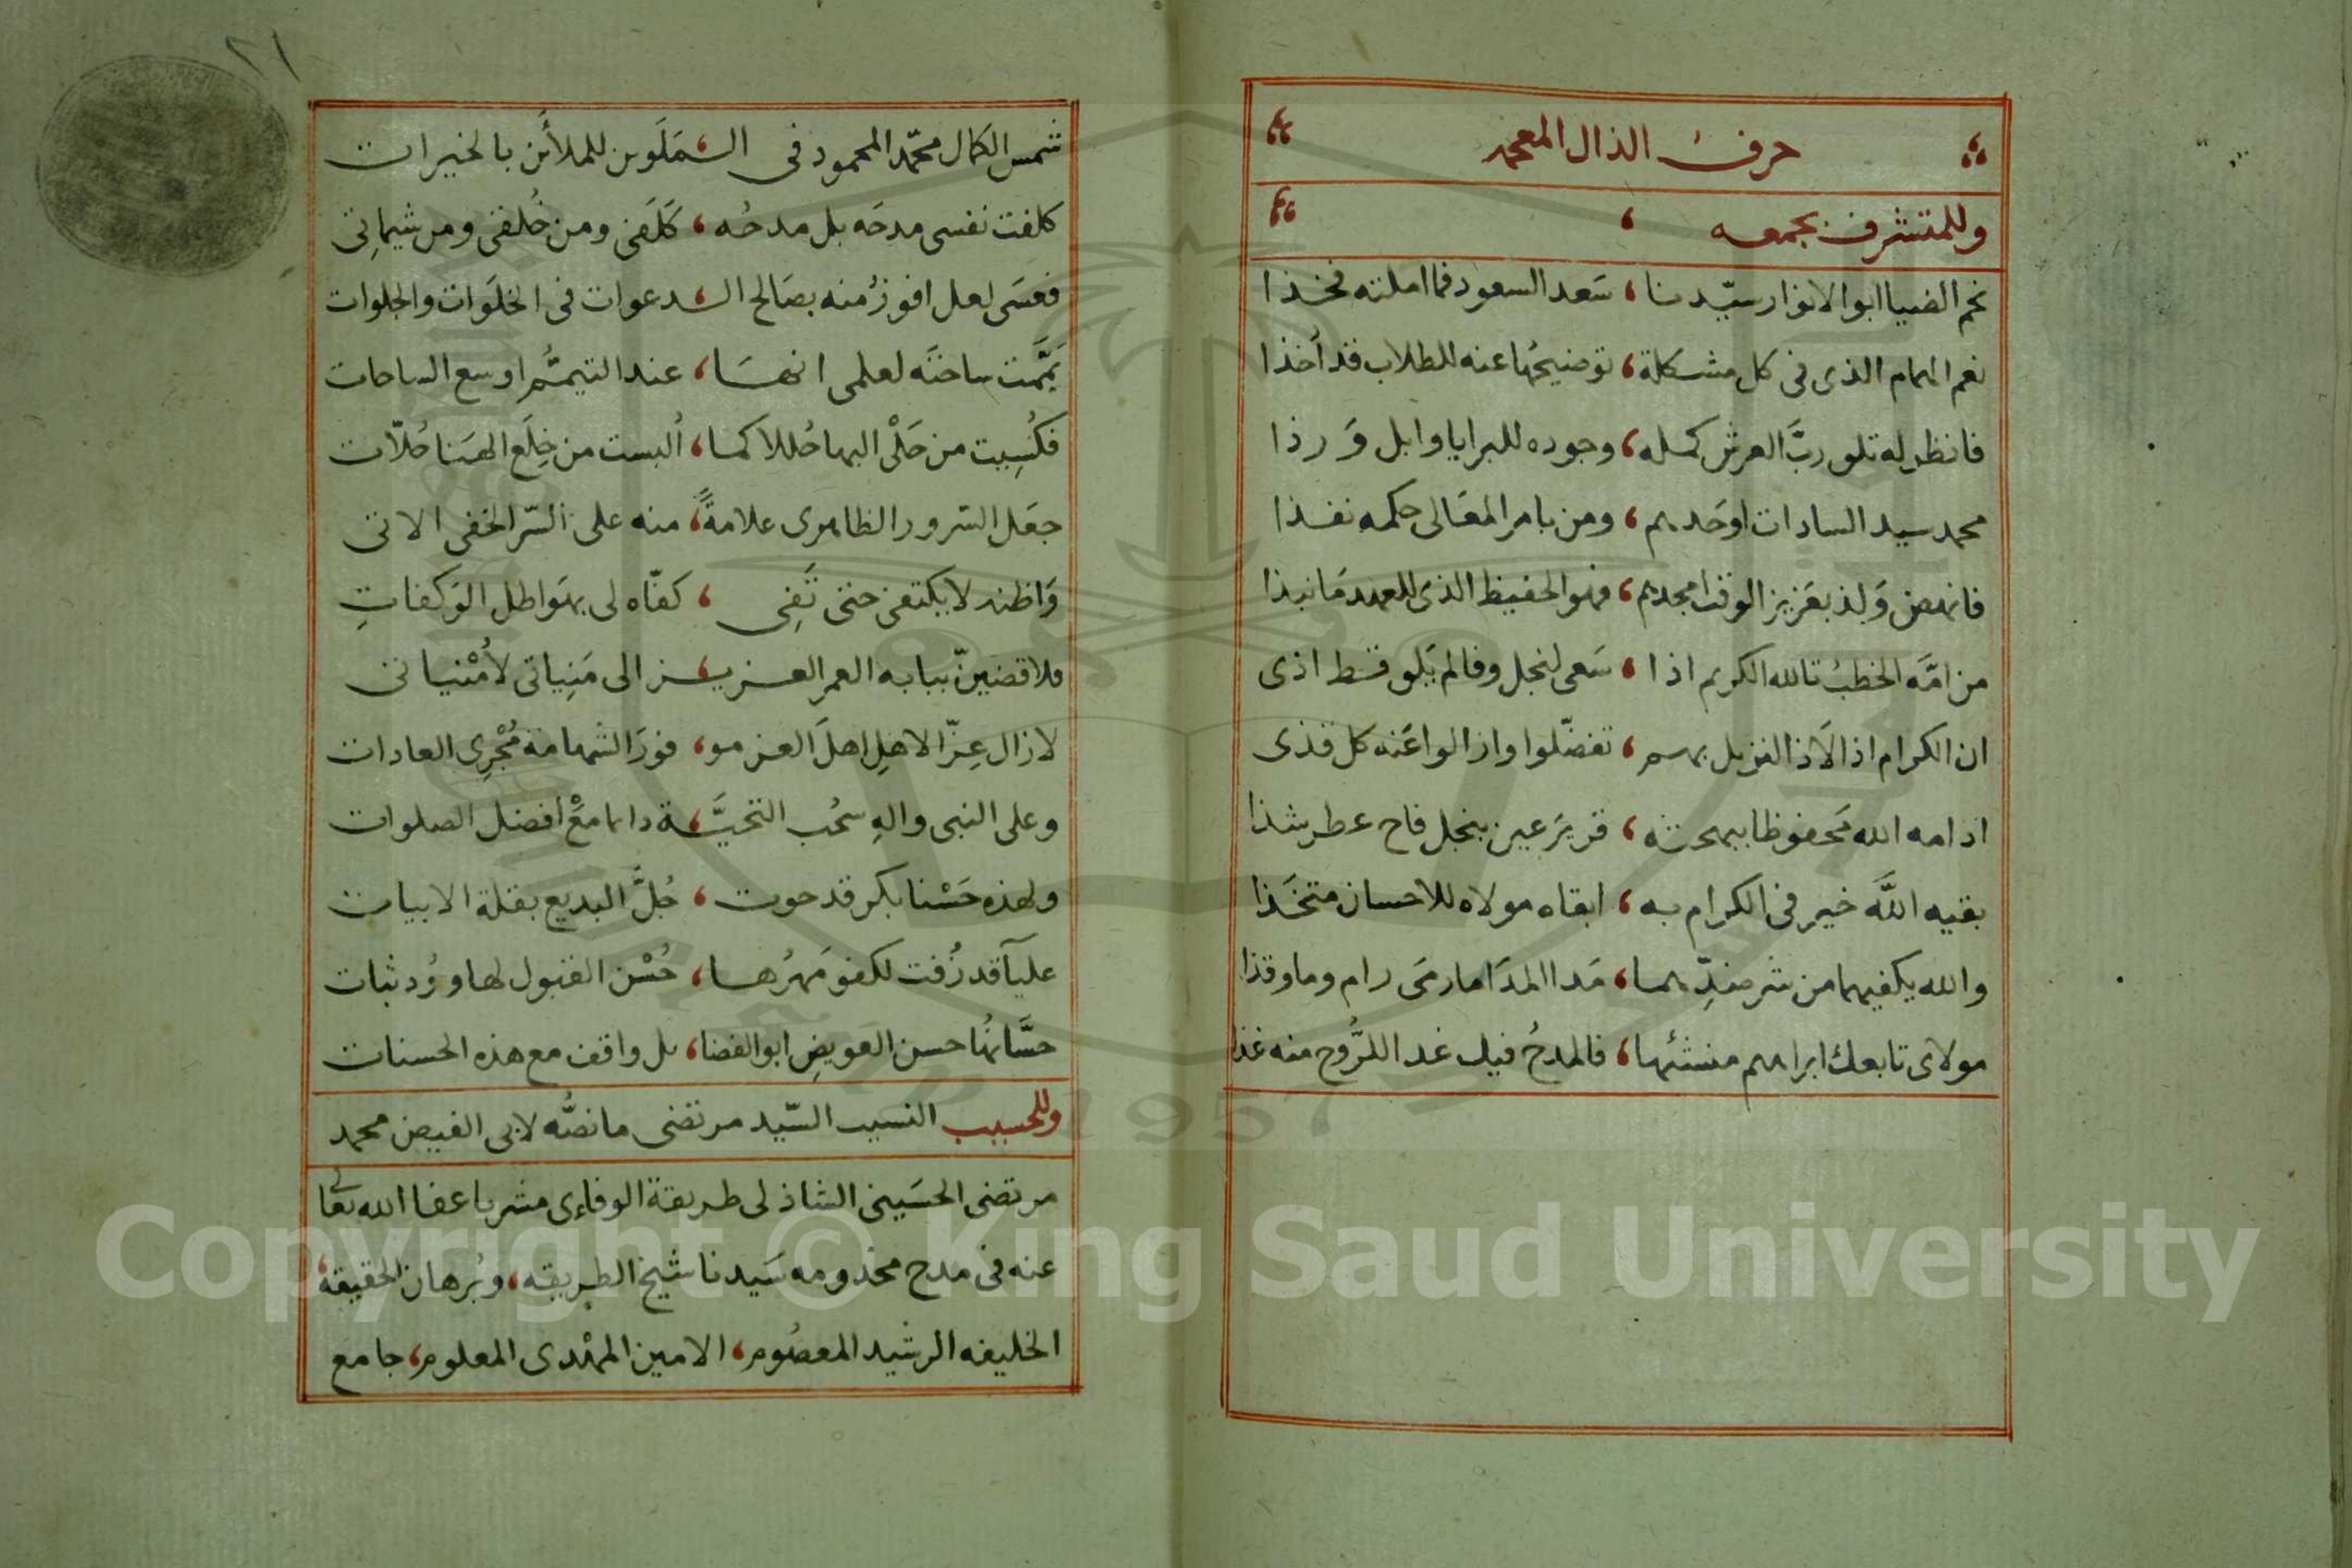 حرف الذال المعجمه
وللمتشرف بجمعه ،
نجم الضيا ابو الانوار سيّدنا ، سَعد السعود فما املته فخذا
نعم الهمام الذى فى كل مشكلة ، توضيحُها عنه للطلاب قد أخذا
فانظر له تلو ربَّ العرش كمله ، وجوده للبرايا وابل وَرذا
محمد سيد السادات اوحَدهم ، ومن بامر المعَالى حكمه نفذا
فانهض وَلذ بعَزيز الوقت امجدهم ، فهو الحفيظ الذى للعهد مَا نبذا
من امَّه الخطبُ تالله الكريم اذا ، سَعى لنجل وفا لم يَلو قط اذى
ان الكرام اذا لَاذ النزيل بهم ، تفضّلوا وازالوا عَنه كل قذى
ادامه الله مَحفوظا ببهجته ، قرير عين بنجل فاح عطر شذا
بقيه اللَّه خير فى الكرام به ، ابقاه مولاه للاحسان متخَذا
والله يكفيهما من شر ضدِّهما ، مَدا المدَا مارمَى رام وما وقذا
مولاى تابعك ابراهم منشئها ، فالمدحُ فيك غدا للرُّوح منه غذا
٢١
شمس الكمال محمّد المحمود فى السَّمَلَوين للملأين بالخيرات
كلفت نفسى مدحَه بل مدحُه ، كَلَفى ومن خُلقى ومن شيماتِى
فعسَى لعل افوزُ منه بصَالح الـدعوات فى الخلَوَات والجلوات
يَمَّمت ساحتَه لعلمى انهَا ، عند التيمُّم اوسع الساحات
فكُسِيت من حَلْى البها حُللا كما ، أُلبست من خِلَع الهَنا حُلاّت
جعَل السّرور الظاهرى علامةً ، منه على السّر الخفى الاتى
وَاظنه لا يكتفى حتى تَفِى ، كفّاه لى بهَواطل الوَكفاتِ
فلاقضينّ ببابه العمر العزيز الى مَنِياتى لأُمْنياتى
لازال عِزّ الاهلِ اهلَ العزمو ، فورَ الشهامة مُجْرِى العادات
وعلى النبى والهِ سحُب التحيَّة دائما معْ افضل الصلوات
ولهذه حَسْنا بكر قد حوت ، جُلَّ البديع بقلة الابيات
عليآ قد زُفت لكفو مَهرُها ، حُسْن القبول لها وُرد ثبات
حسَّانُها حسن العويضِ ابو الفضا ، ئل واقف مع هذه الحسنات
وللحسيب النسيب السّيد مرتضى ما نصُّه لابى الفيض محمد
مرتضى الحسَينى الشاذلى طريقة الوفاءى مشربا عفا الله تعالى
عنه فى مدح مخدومه سَيدنا شيخ الطريقه ، وبُرهان الحقيقه ،
الخليفه الرشيد المعصُوم ، الامين المهْدى المعلوم ، جامع
Copyright © King Saud University
1957